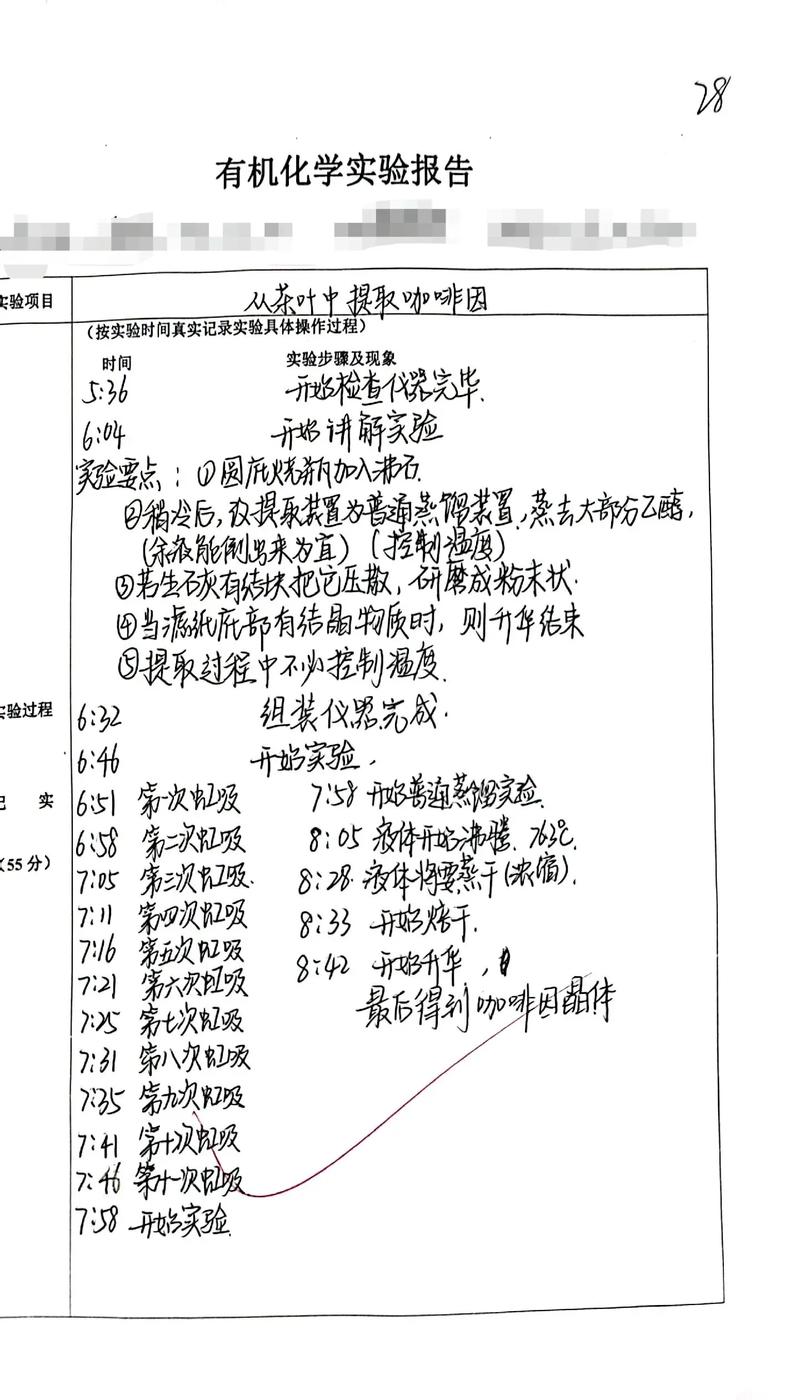 28
有机化学实验报告
实验项目
从茶叶中提取咖啡因
(按实验时间真实记录实验具体操作过程)
时间 实验步骤及现象
5:36 开始检查仪器完毕.
6:04 开始讲解实验
实验要点：①圆底烧瓶加入沸石.
②稍冷后,改提取装置为普通蒸馏装置,蒸去大部分乙醇,
(余液能倒出来为宜)(控制温度)
③若生石灰有结块把它压散,研磨成粉末状.
④当滤纸底部有结晶物质时,则升华结束
⑤提取过程中不必控制温度.
实验过程
记 实
(55分)
6:32 组装仪器完成.
6:46 开始实验.
6:51 第一次虹吸
6:58 第二次虹吸
7:05 第三次虹吸.
7:11 第四次虹吸
7:16 第五次虹吸
7:21 第六次虹吸
7:25 第七次虹吸
7:31 第八次虹吸
7:35 第九次虹吸
7:41 第十次虹吸
7:46 第十一次虹吸
7:58 开始实验.
7:58 开始普通蒸馏实验.
8:05 液体开始沸腾. 76.3℃.
8:28 液体将要蒸干(浓缩).
8:33 开始焙干.
8:42 开始升华,
最后得到咖啡因晶体